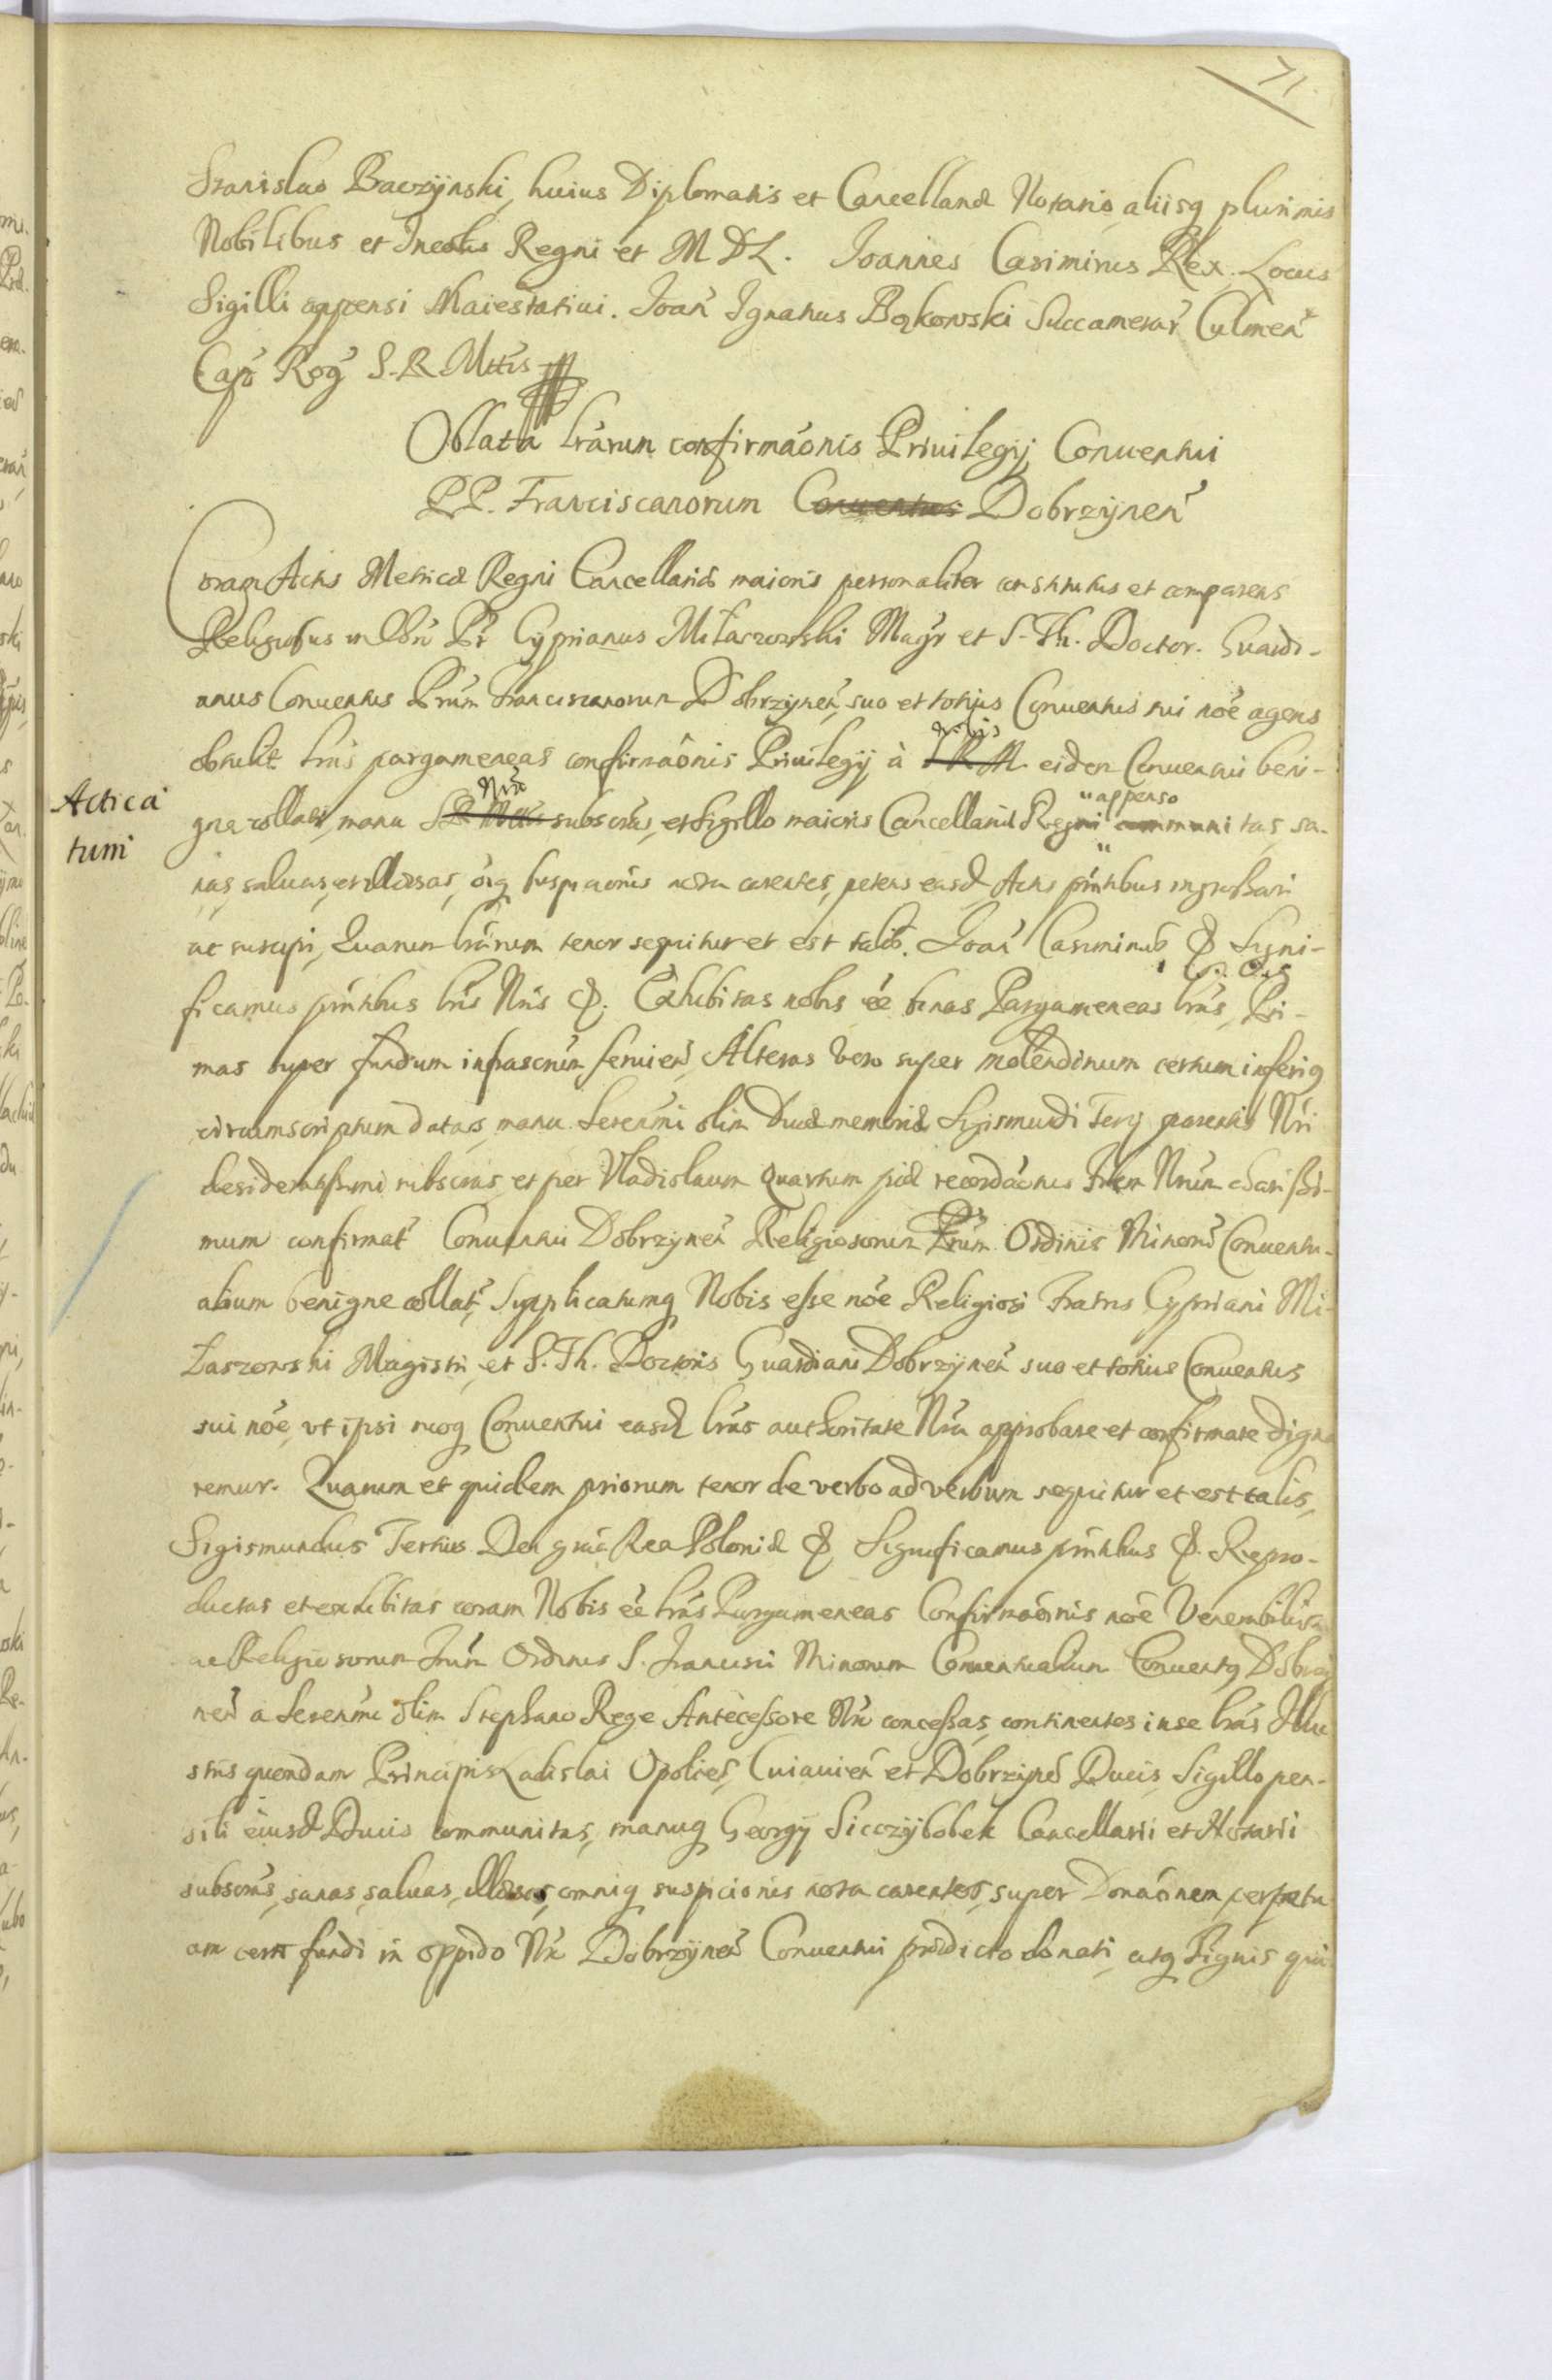 71.
Stanislao Baczÿnski, huius Diplomatis et Cancellariæ Notario, aliisq plurimis
Nobilibus et Incolis Regni et M D L. Joannes Casimirus Rex. Locus
Sigilli appensi Maiestatiui. Joan̄ Ignatius Bąkowski Succamerar̄ Culmen̄
Cap Reg S. R. Mttis
Oblata lrarum confirmaonis Priuilegij Conuentui
PP. Franciscanorum Conuentus Dobrzÿnen̄
Coram Actis Metricæ Regni Cancellariæ maioris personaliter constitutus et comparens
Religiosus in Pr Cyprianus Miłaszowski Magr et S. Th. Doctor. Guardi-
anus Conuentus Prum Franciscanorum Dobrzÿnen̄, suo et totius Conuentus sui noe agens
obtulit lras pargameneas confirmaonis Priuilegij à S R M nobis eidem Conuentui beni-
gne collati, manu S R Mttis Nra subscras, et Sigillo maioris Cancellariæ Regni appenso communitas, sa-
Actica
tum
nas, saluas, et illæsas, oiq suspicaonis nota carentes, petens easd Actis pntibus ingrossari
ac suscipi, Quarum lrarum tenor sequitur et est talis. Joan̄ Casimirus & Signi-
ficamus pntibus lris Nris &. Exhibitas nobis ee binas Pargameneas lras, Pri-
mas super fundum infrascrum seruien̄, Alteras vero super molendinum certum inferiq
circumscriptum datas, manu Serenmi olim Diuæ memoriæ Sigismundi Tertij parentis Nri
desideratissimi subscras, et per Vladislaum Quartum piæ recordaonis Frem Nrum charissi-
mum confirmat Conuentui Dobrzÿnen̄ Religiosorum Frum Ordinis Minorum Conuentu-
alium benigne collat, Supplicatumq Nobis esse noe Religiosi Fratris Cypriani Mi-
łaszowski Magistri et S. Th. Doctoris Guardiani Dobrzÿnen̄ suo et totius Conuentus
sui noe, vt ipsi suoq Conuentui easd lras authoritate Nra approbare et confirmare digna
remur. Quarum et quidem priorum tenor de verbo ad verbum sequitur et est talis,
Sigismundus Tertius Dei gra Rex Poloniæ & Significamus pntibus &. Repro-
ductas et exhibitas coram Nobis ee lras Pargameneas Confirmaonis noe Venerabilium
ac Religiosorum Frum Ordinis S. Francisci Minorum Conuentualium Conuentq Dobrzÿ
nen̄ a Serenmo olim Stephano Rege Antecessore Nro concessas, continentes in se lras Illu
stris quondam Principis Ladislai Opolien̄, Cuiauien̄ et Dobrzÿnen̄ Ducis, Sigillo pen-
sili eiusd Ducis communitas, manuq Georgij Siczÿbobek Cancellarii et Notarii
subscras, sanas, saluas, illæsas, omniq suspicionis nota carentes, super Donaonem perpetu
am certi fundi in oppido Nro Dobrzÿnen̄ Conuentui prædicto donati, atq Lignis qui